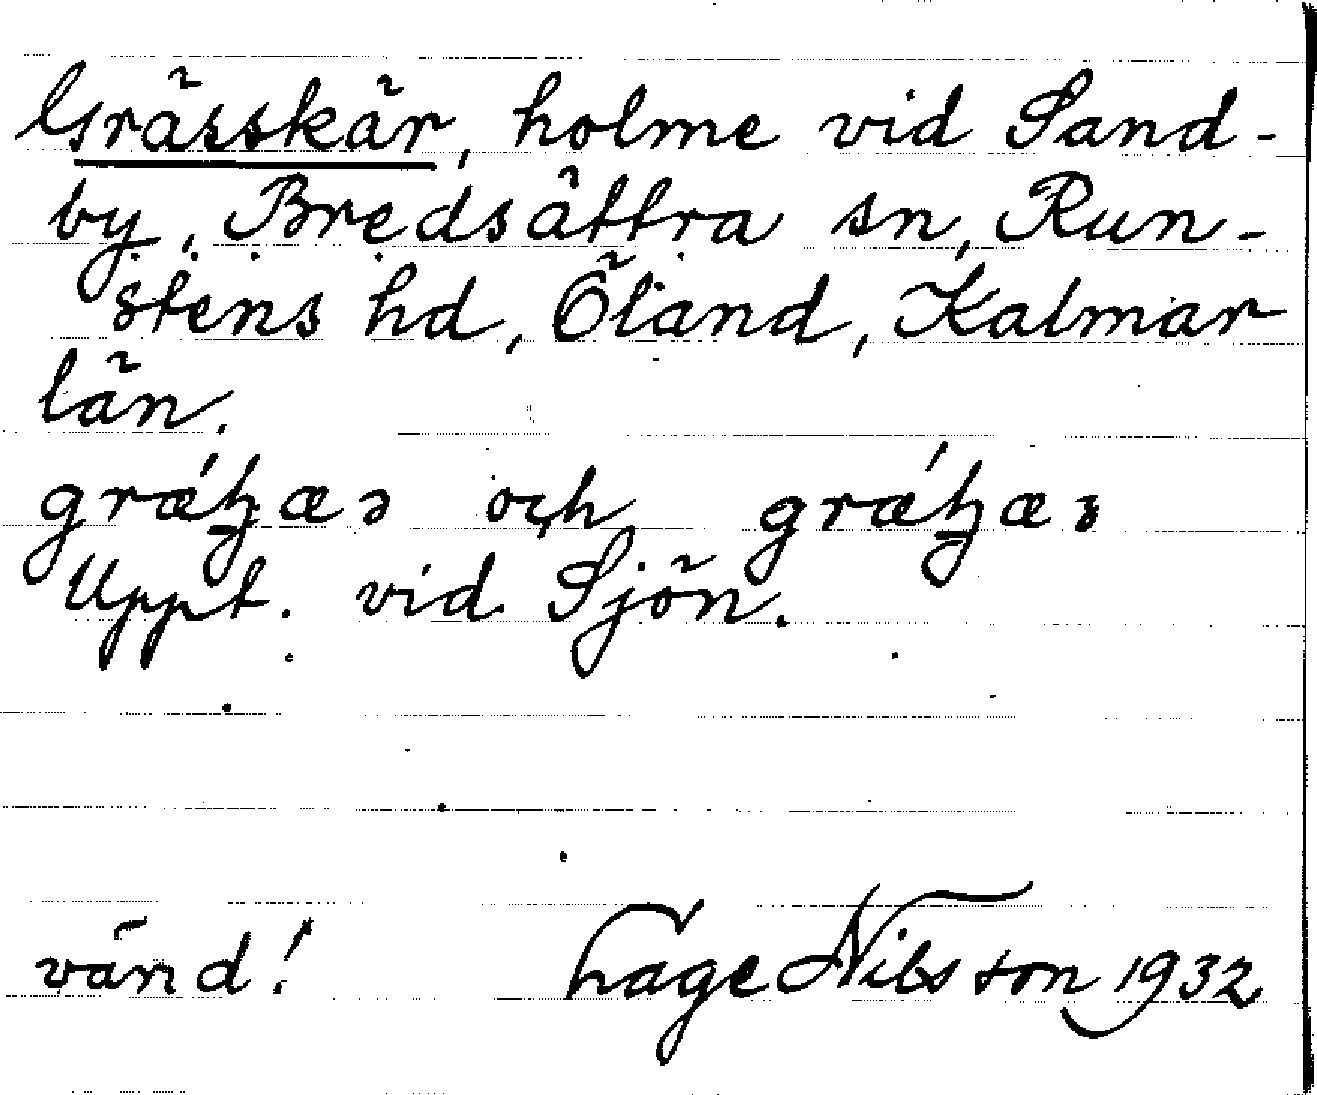 Grässkär, holme vid Sand-
by, Bredsättra sn, Run-
stens hd, Öland, Kalmar
län.
och
Uppt. vid Sjön.
vänd! Tage Nilsson 1932